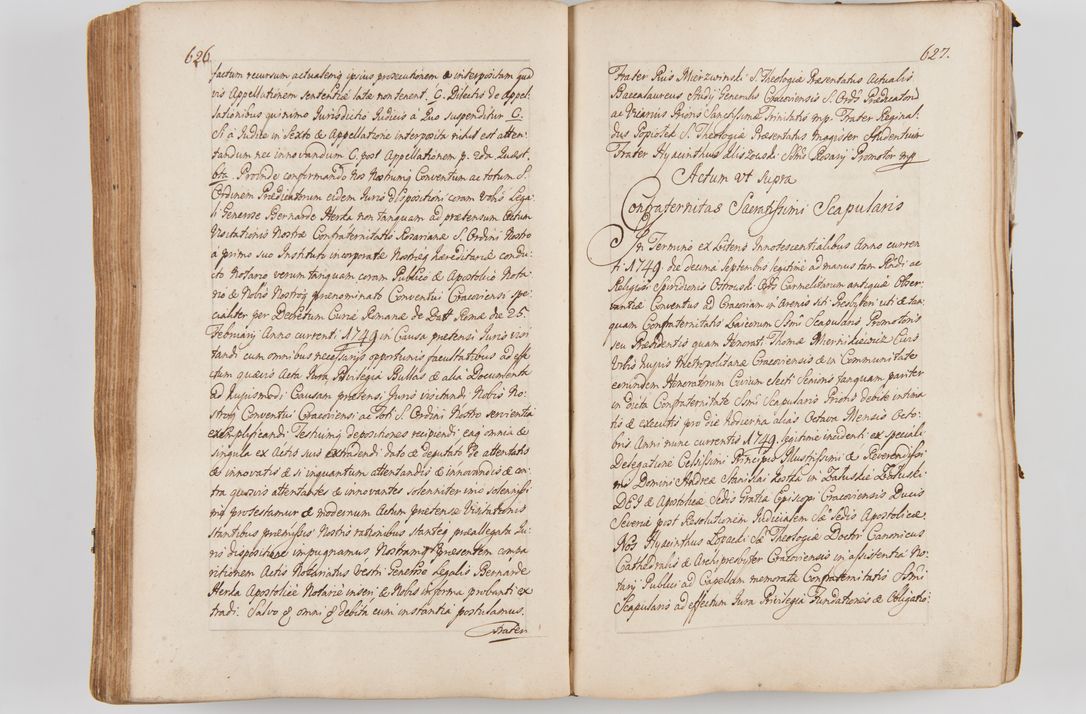 626
factum recursum actualemq ipsius prosecutionem & interpositam quā
vis Appellationem Sententiæ latæ non tenent. C. Dilectis de Appel:
lationibus quinimo Jurisdictio Judicis à Quo Suspenditur C.
Si à Judice in Sexto & Appellatione interposita nihil est atten:
tandum nec innovandum C. post Appellationem
Proinde conformando Nos Nostrumq Conventum ac totum S.
Ordinem Prædicatorum eidem Juris dispositioni coram
Generose Bernarde Herka non tanquam ad prætensum Actum
Visitationis Nostræ Confraternitatis Rosarianæ S. Ordini Nostro
à primo Suo Instituto incorporatæ Nostrisq hæreditariæ condu:
cto Notario verum tanquam coram Publico & Apostolico Nota:
rio & Nobis Nostroq prænominato Conventui Cracoviensi spe:
cialiter per Decretum Curiæ Romanæ de Datt Romæ die 25
Februarij Anno currenti 1749 in Causa prætensi Juris visi:
tandi cum omnibus necessarijs opportunis facultatibus ad effe:
ctum quævis Acta Jura Privilegia Bullas & alia Documenta
ad hujusmodi Causam prætensi Juris visitandi Nobis No:
stroq Conventui Cracoviensi ac Toti S. Ordini Nostro servientia
exemplificandi Testiumq depositiones recipiendi eaq omnia &
singula ex Actis suis extradendi dato & deputato De attentatis
& innovatis & si inquantum attentandis & innovandis & con:
tra quosvis attentantes & innovantes solenniter imò solennissi:
mè protestamur & modernum Actum prætensæ Visitationis
stantibus præmissis Nostris rationibus stanteq præallegata Ju:
ris dispositione impugnamus Nostramq præsentem compa:
ritionem Actis Notariatus Vestri Generose Legalis Bernarde
Herka Apostolice Notarie inseri & Nobis in forma probanti ex:
tradi. Salvo omni debita cum instantia postulamus.
Frater
627.
Frater Pius Mierzwinski S. Theologiæ Præsentatus Actualis
Baccalaureus Studij Generalis Cracoviensis S. Ordis Prædicatorū
ac Vicarius Prioris Sanctissimæ Trinitatis mp. Frater Reginal:
dus Popiołek S. Theologiæ Præsentatus Magister Studentum
Frater Hyacinthus Sśmi Rosarij Promotor mp
Actum ut Supra
Confraternitas Sacratissimi Scapularis
In Termino ex Literis Innotescentialibus Anno curren:
ti 1749. die decima Septembris legitimè ad manus tam Rndi: ac
Religiosi Spiridionis Ostrowski Ordis Carmelitarum antiquæ Obser:
vantiæ Conventus ad Cracoviam in Arenis siti Presbyteri uti & tan:
quam Confraternitatis Laicorum Ssmi Scapularis Promotoris
seu Præsidentis quam Honorati Thomæ Civis
Urbis hujus Metropolitanæ Cracoviensis & in Communitate
eorundem Honoratorum Civium electi Senioris tanquam pariter
in dicta Confraternitate Ssmi Scapularis Prioris debitè intima:
tis & executis pro die hodierna alias Octava Mensis Octo:
bris Anni nunc currentis 1749. legitimè incidenti ex speciali
Delegatione Celsissimi Principis Illustrissimi & Reverendissi:
mi Domini Andreæ Stanislai Kostka in Załuskie Załuski
DEI & Apostolicæ Sedis Gratia Episcopi Cracoviensis Ducis
Severiæ post Resolutionem Judicialem Sæ Sedis Apostolicæ
Nos Hyacinthus Łopacki Sæ Theologiæ Doctor Canonicus
Cathedralis & Archipresbyter Cracoviensis in assistentia No:
tarij Publici ad Capellam memoratæ Confraternitatis Ssmi
Scapularis ad effectum Jura Privilegia Fundationes & Obligatio: